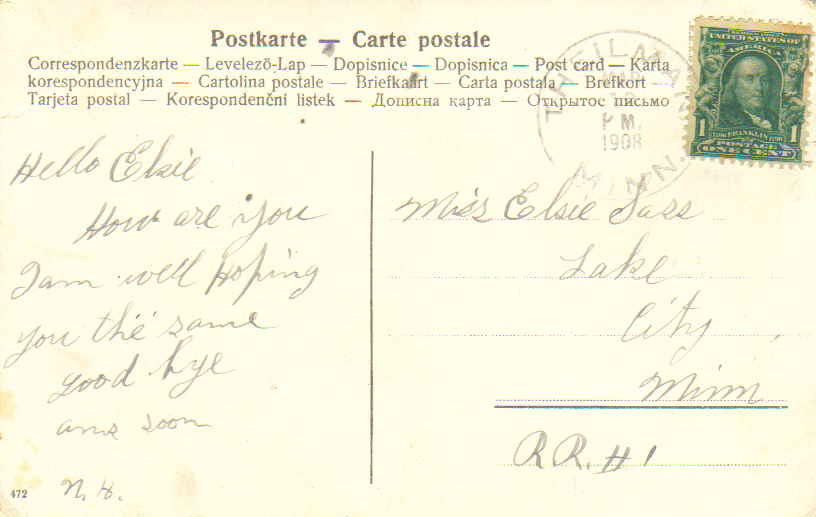 Postkarte — Carte postale
Correspondenzkarte — Levelező-Lap — Dopisnice — Dopisnica — Post card — Karta
korespondencyjna — Cartolina postale — Briefkaart — Carta postala — Brefkort —
Tarjeta postal — Korespondenční listek — Дописна карта — Открытое письмо
THEILMAN
P M.
1908
MINN.
UNITED STATES OF AMERICA
FRANKLIN
1 1
POSTAGE
ONE CENT
Hello Elsie
How are you
I am well hoping
you the same
good bye
ans soon
N. H.
472
Miss Elsie Sass
Lake
City
Minn
R.R. #1